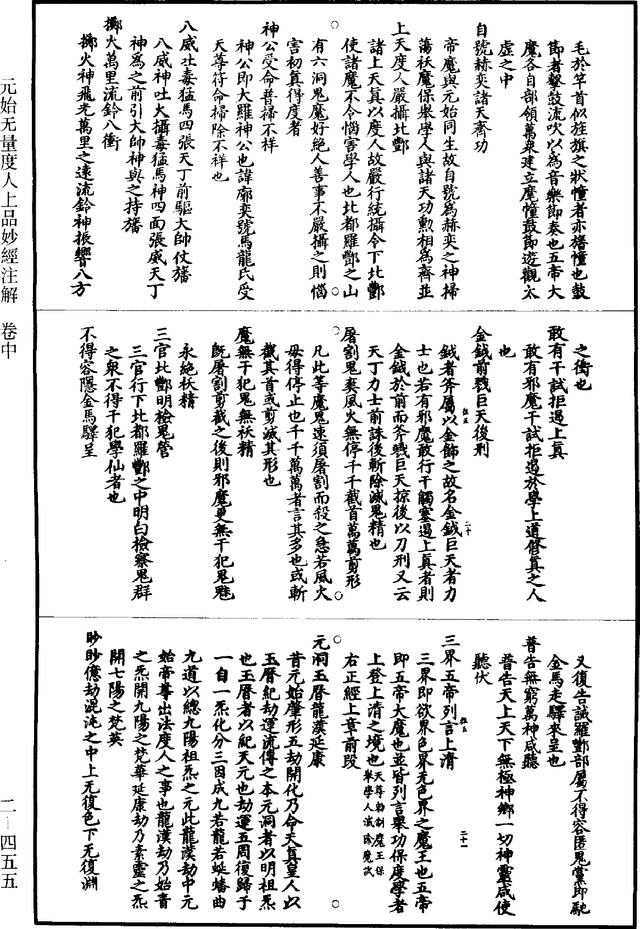 元始无量度人上品妙經注解 卷中
二—四五五
毛於竿首似旌旗之狀幢者亦旛幢也鼓
節者擊鼓流吹以為音樂節奏也五帝大
魔各自部領萬衆建立魔幢鼓節遊觀太
虛之中
自號赫奕諸天齊功
帝魔與元始同生故自號為赫奕之神掃
蕩袄魔保舉學人與諸天功勳相為齊並
上天度人嚴攝北酆
諸上天真以度人故嚴行統攝令下北酆
使諸魔不令惱害學人也北都羅酆之山
有六洞鬼魔好絕人善事不嚴攝之則惱
害初真得度者
神公受命普掃不祥
神公即大羅神公也諱廓奕號馬龍氏受
天尊符命掃除不祥也
八威吐毒猛馬四張天丁前驅大帥仗旛
八威神吐火攝毒猛馬神四面張威天丁
神為之前引大帥神與之持旛
擲火萬里流鈴八衝
擲火神飛光萬里之遠流鈴神振響八方
之衝也
敢有干試拒遏上真
敢有邪魔干試拒遏於學上道修真之人
也
金鉞前戮巨天後刑
鉞者斧屬以金飾之故名金鉞巨天者力
士也若有邪魔敢行干觸塞遏上真者則
金鉞於前而斧戮巨天掠後以刀刑又云
天丁力士前誅後斬除滅鬼精也
屠割鬼爽風火無停千千截首萬萬剪形
凡此等魔鬼速須屠割而殺之急若風火
毋得停止也千千萬萬者言其多也或斬
截其首或剪滅其形也
魔無干犯鬼無袄精
既屠割剪截之後則邪魔更無干犯鬼魅
永絕袄精
三官北酆明檢鬼營
三官行下北都羅酆之中明白檢察鬼群
之衆不得干犯學仙者也
不得容隱金馬驛呈
又復告誡羅酆部屬不得容匿鬼黨即馳
金馬走驛來呈也
普告無窮萬神咸聽
普告天上天下無極神鄉一切神靈咸使
聽伏
三界五帝列言上清
三界即欲界色界无色界之魔王也五帝
即五帝大魔也並皆列言舉功保度學者
上登上清之境也
右正經上章前段
元洞玉曆龍漢延康
昔元始肇形五劫開化乃命天真皇人以
玉曆紀劫運流傳之本元洞者以明祖炁
也玉曆者以紀天元也劫運五周復歸于
一自一炁化分三因成九若龍若蜒蟠曲
九道以總九陽祖炁之元此龍漢劫中元
始帝尊出法度人之事也龍漢劫乃始音
之炁開九陽之梵華延康劫乃素靈之炁
開七陽之梵英
眇眇億劫混沌之中上无復色下无復淵